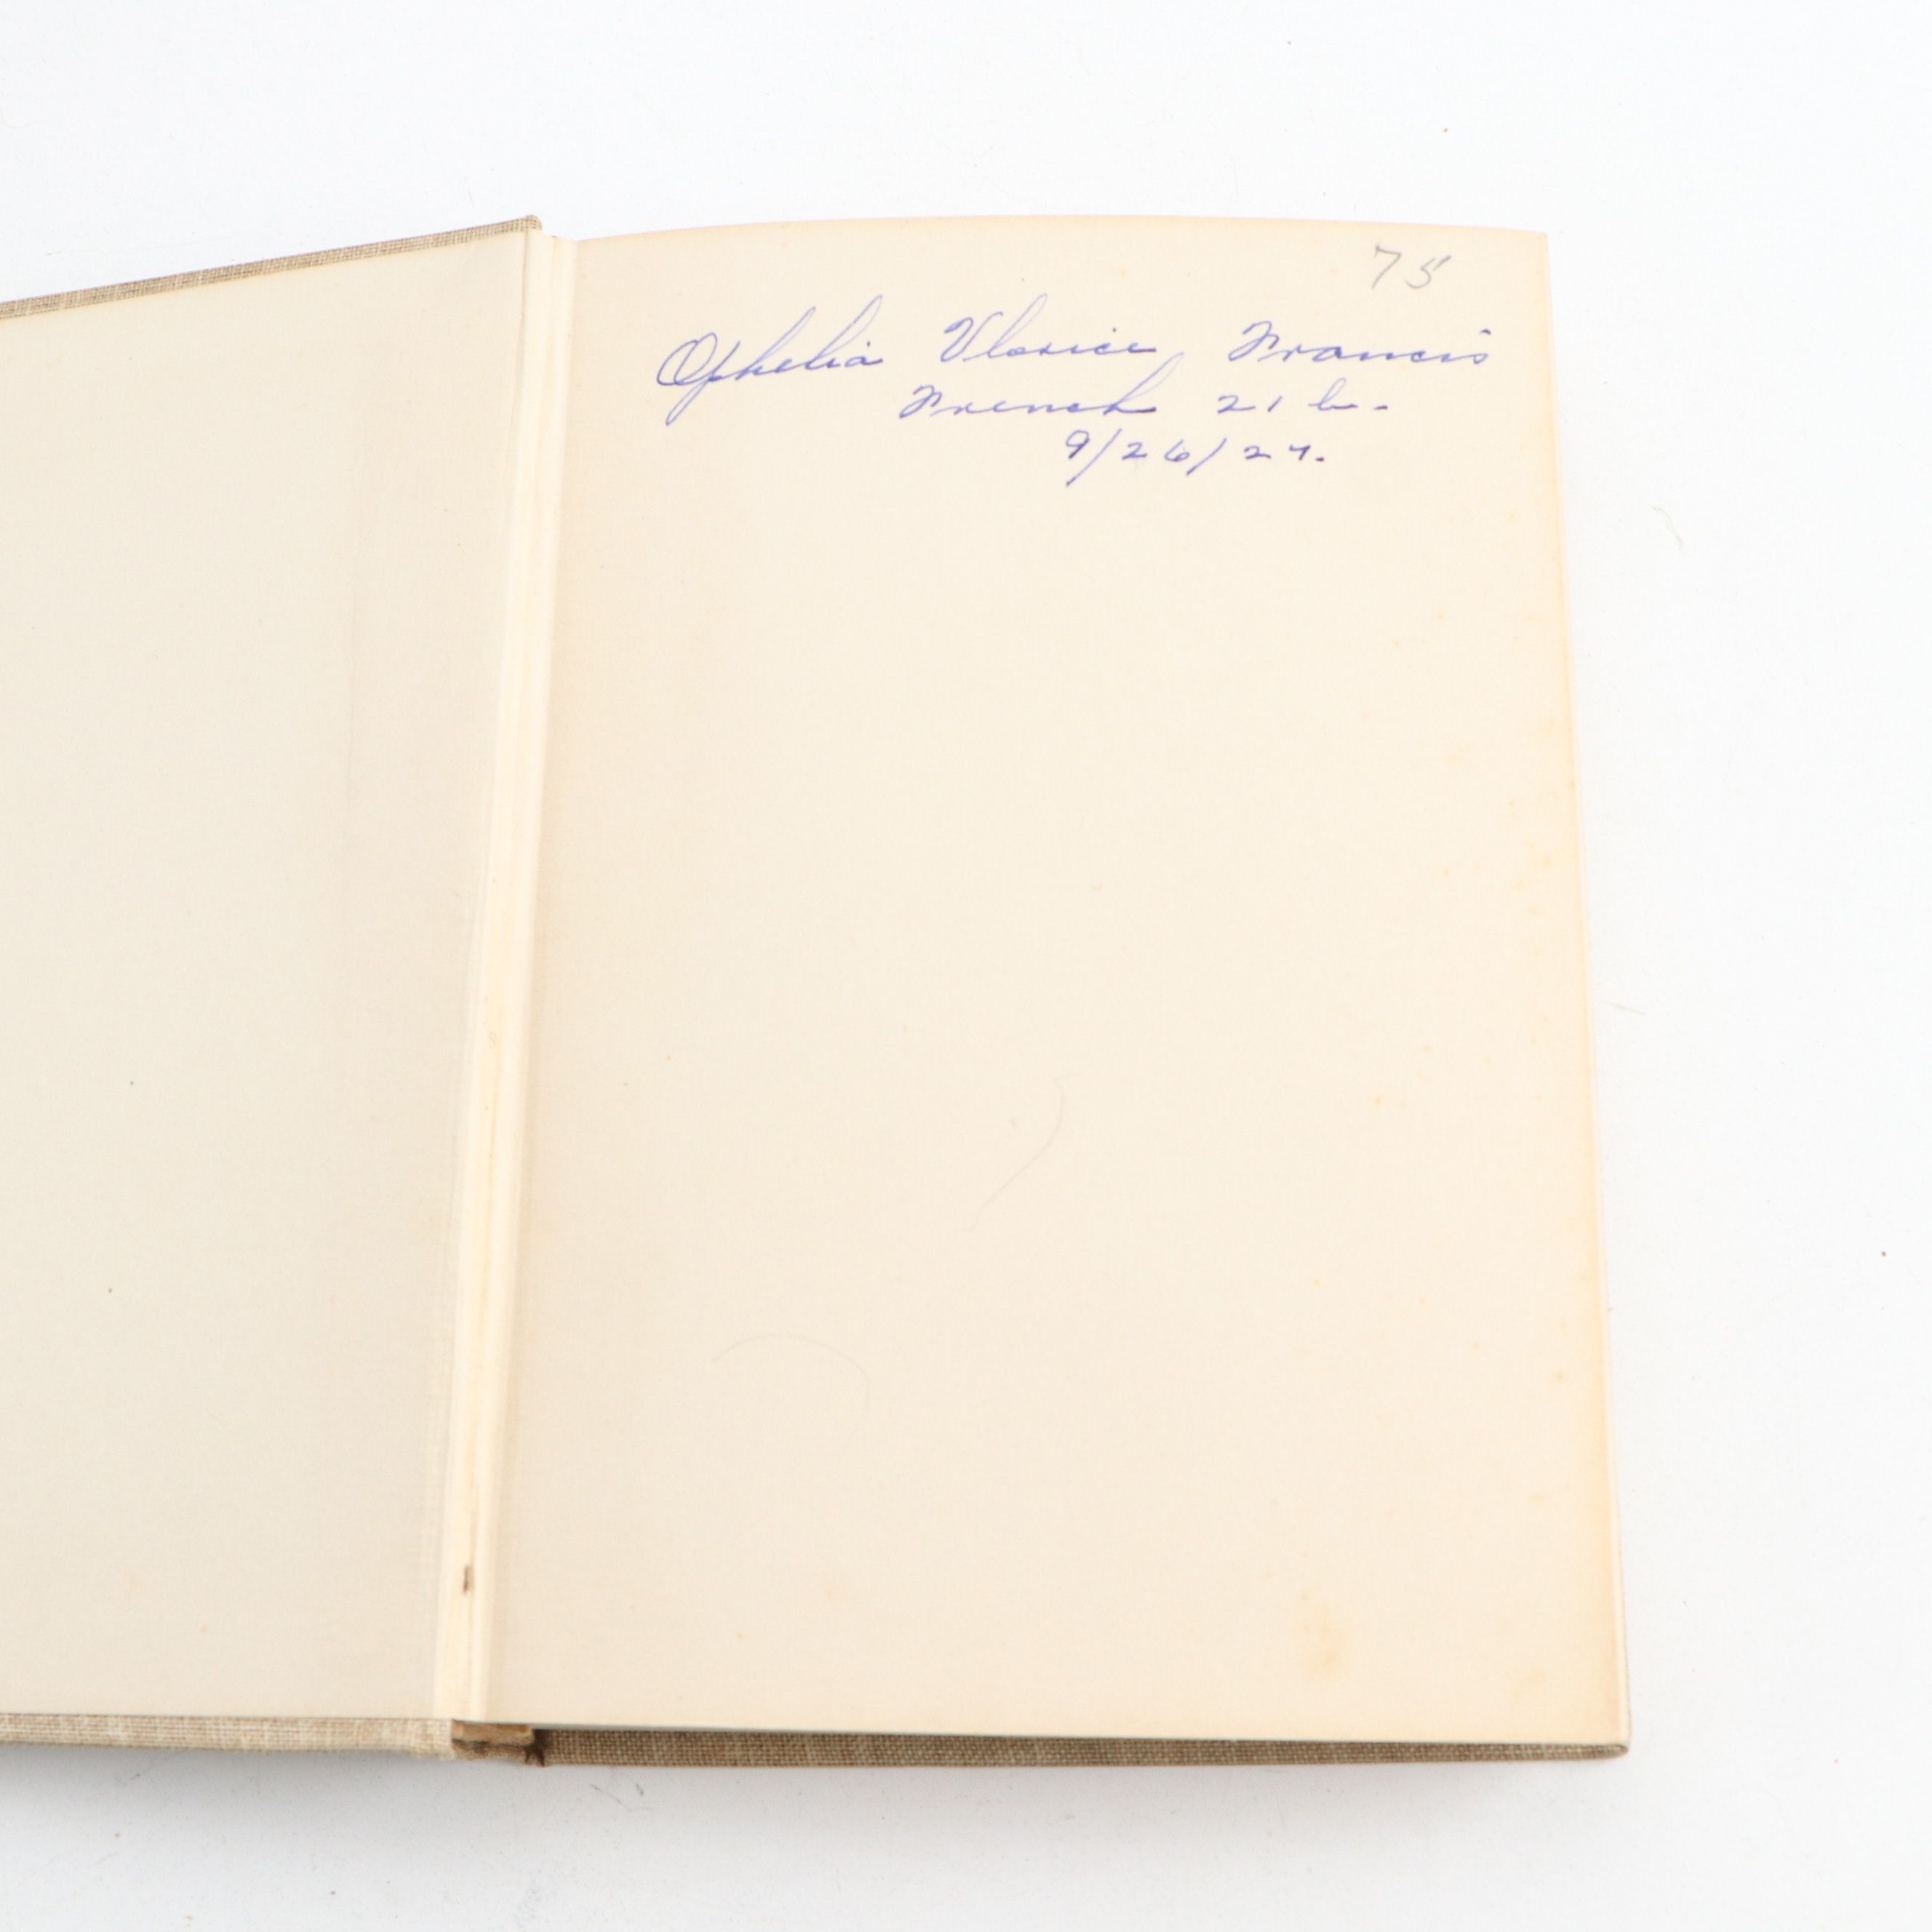 75
Ophelia Francis
French 21 b.
9/26/27.